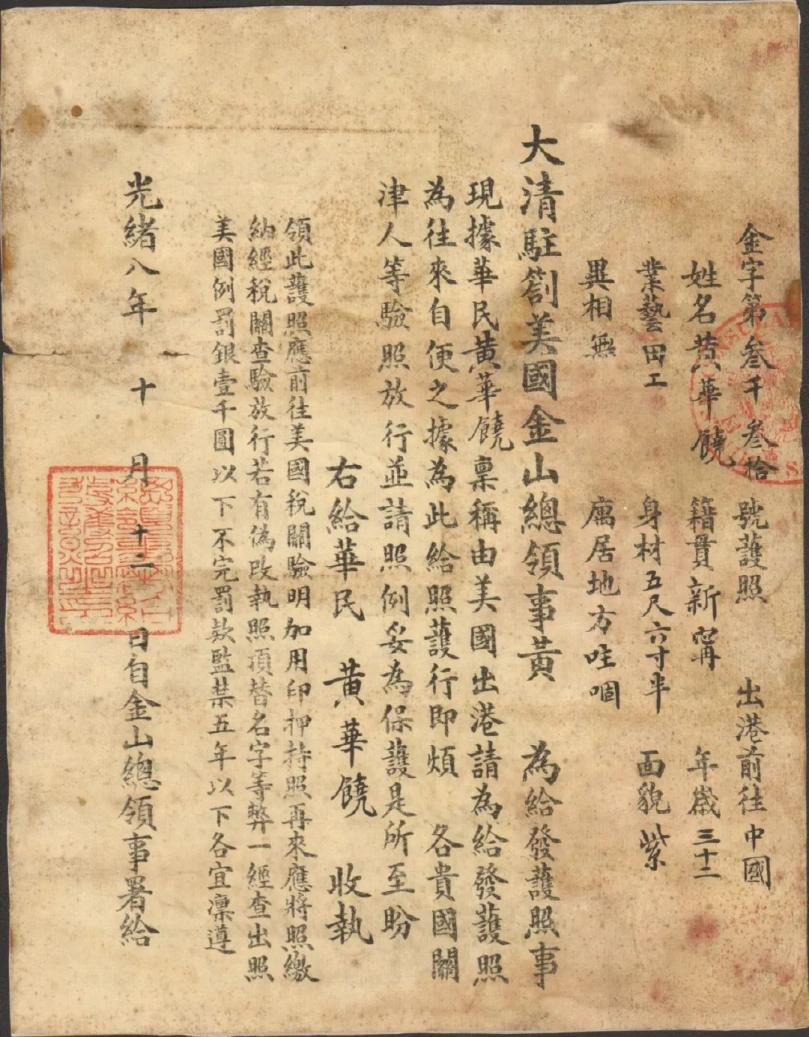 金字第叁千叁拾號護照 出港前往中國
姓名黃華饒 籍貫新寗 年歲三十二
業藝田工 身材五尺六寸半 面貌紫
異相無 寓居地方哇嗰
大清駐劄美國金山總領事黃 為給發護照事
現據華民黃華饒稟稱由美國出港請為給發護照
為往來自便之據為此給照護行即煩 各貴國關
津人等驗照放行並請照例妥為保護是所至盼
右給華民 黃華饒 收執
領此護照應前往美國稅關驗明加用印押持照再來應將照繳
納經稅關查驗放行若有偽改執照頂替名字等弊一經查出照
美國例罰銀壹千圓以下不完罰款監禁五年以下各宜凜遵
光緒八年 十 月 十二 日自金山總領事署給